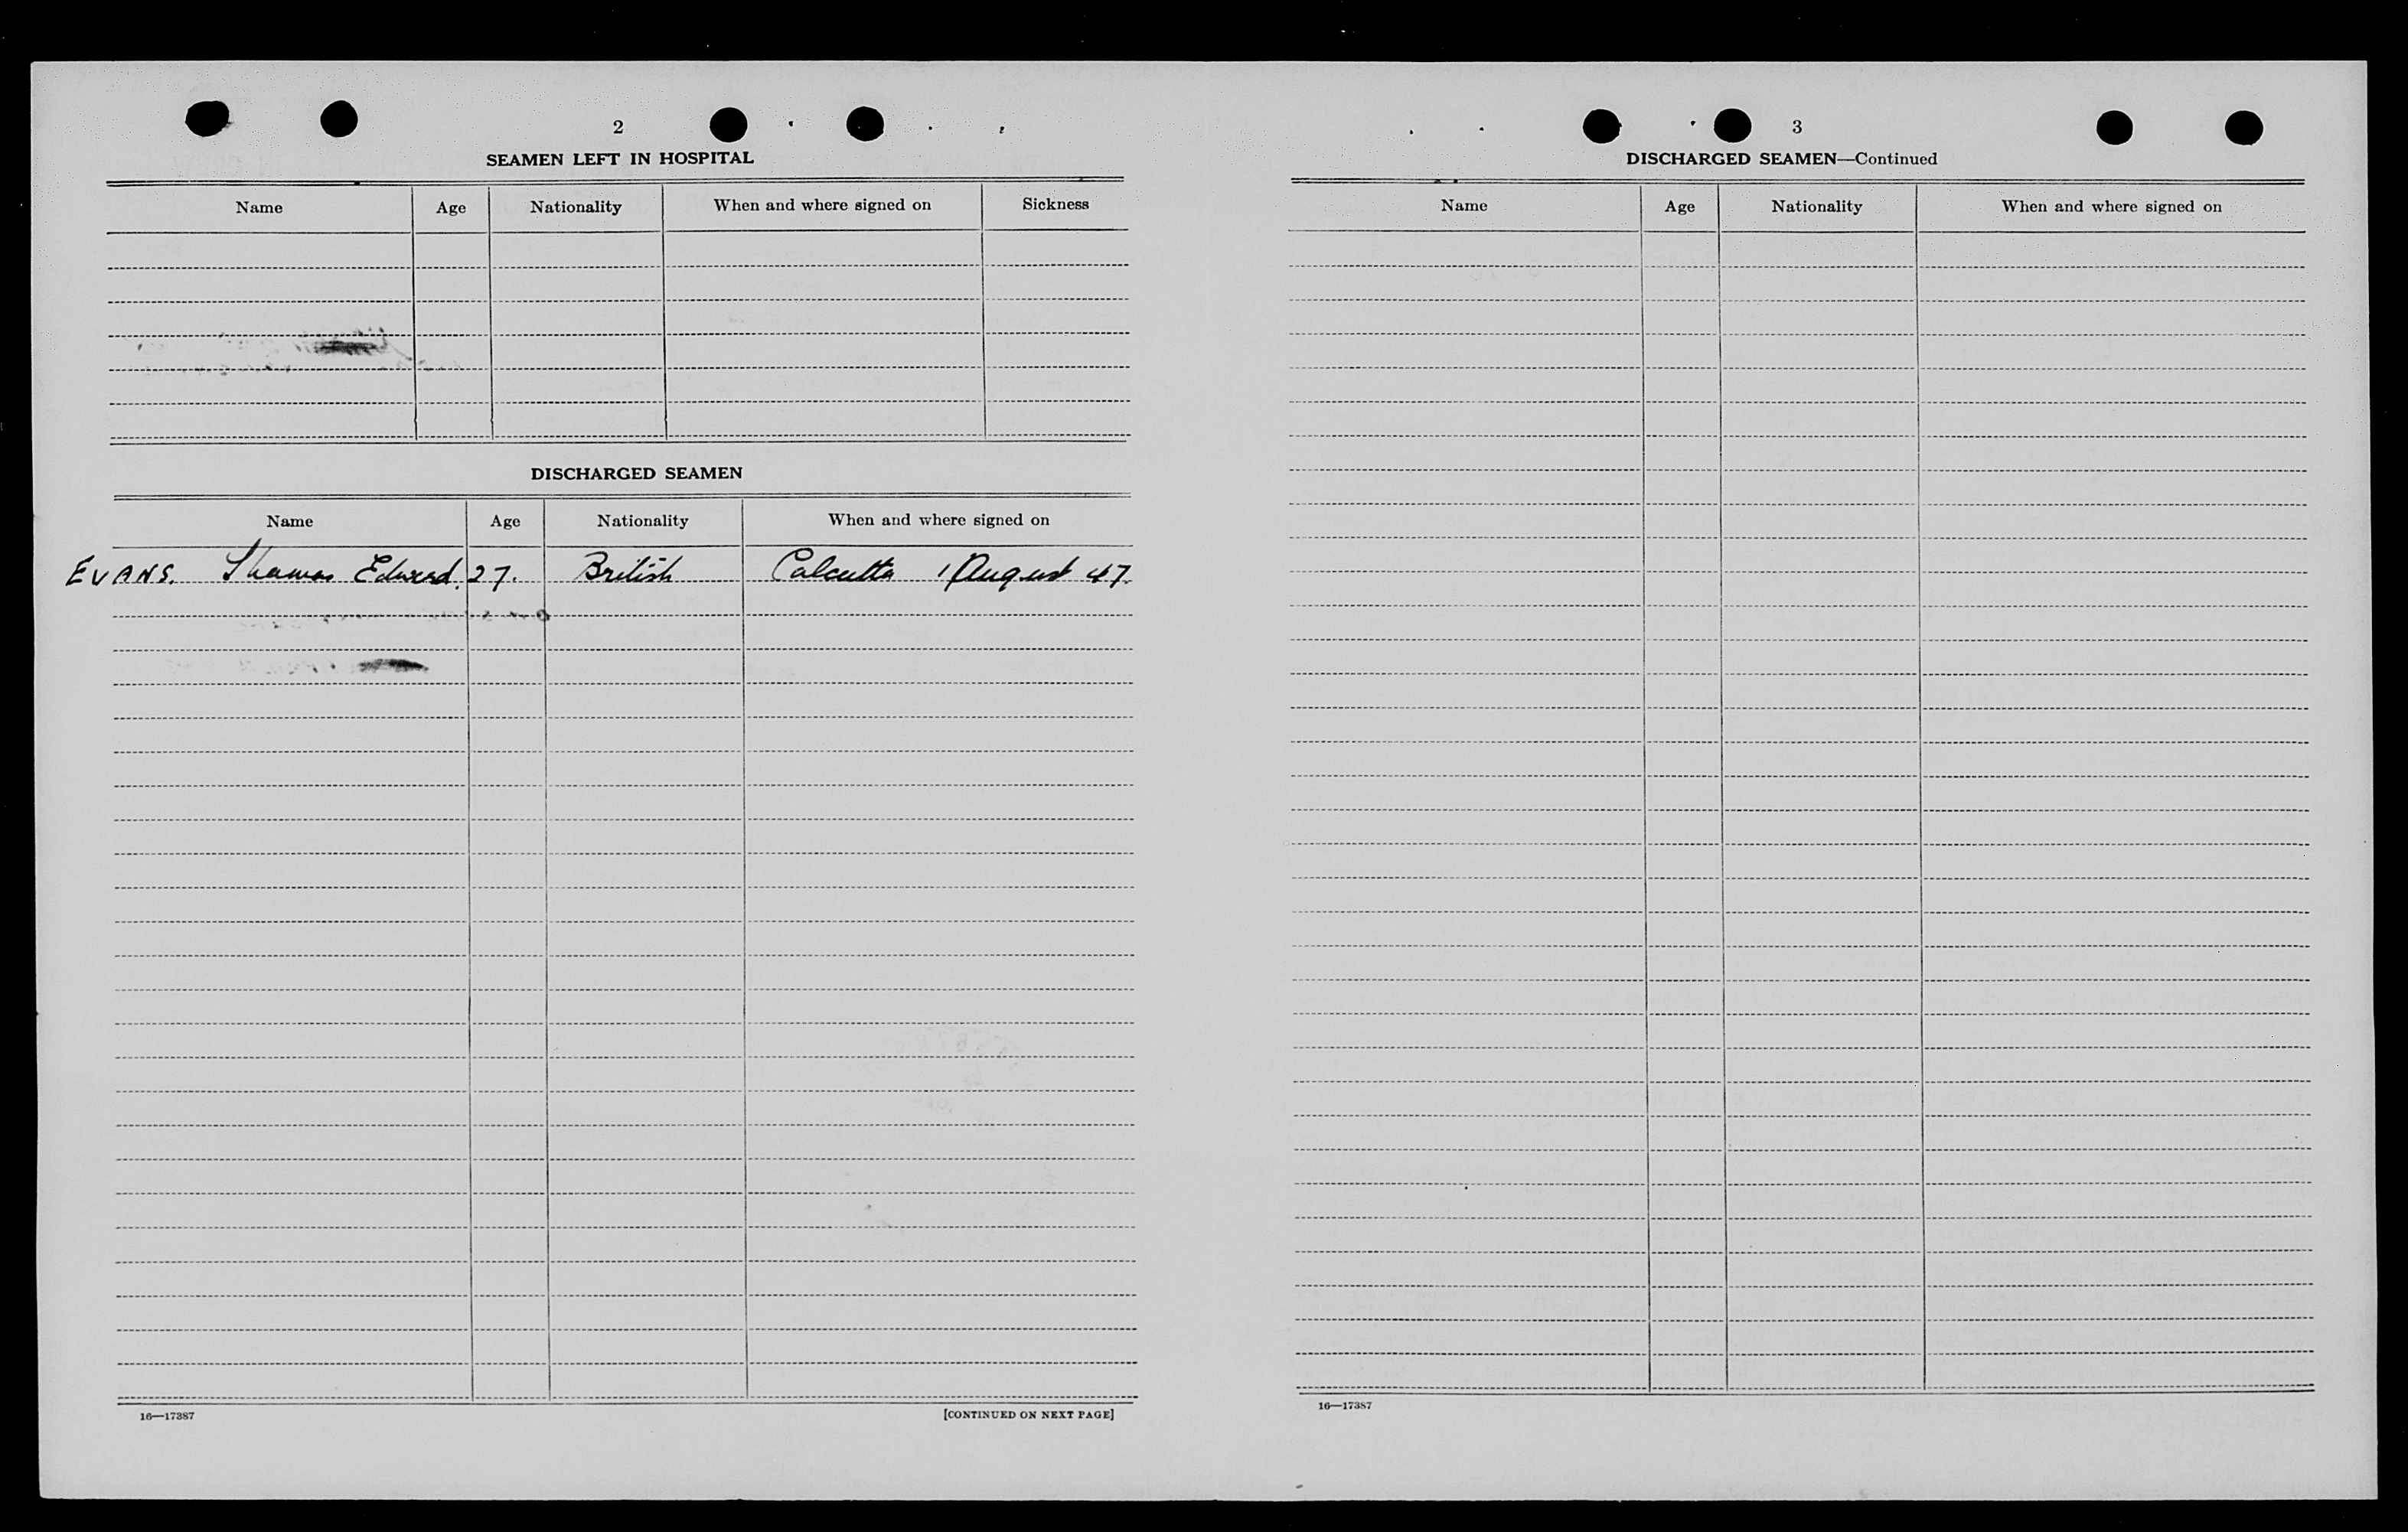 2
SEAMEN LEFT IN HOSPITAL
Name Age Nationality When and where signed on Sickness
DISCHARGED SEAMEN
Name Age Nationality When and where signed on
EVANS. Thomas Edward. 27. British Calcutta 1 August 47.
16—17387 [CONTINUED ON NEXT PAGE]
3
DISCHARGED SEAMEN—Continued
Name Age Nationality When and where signed on
16—17387